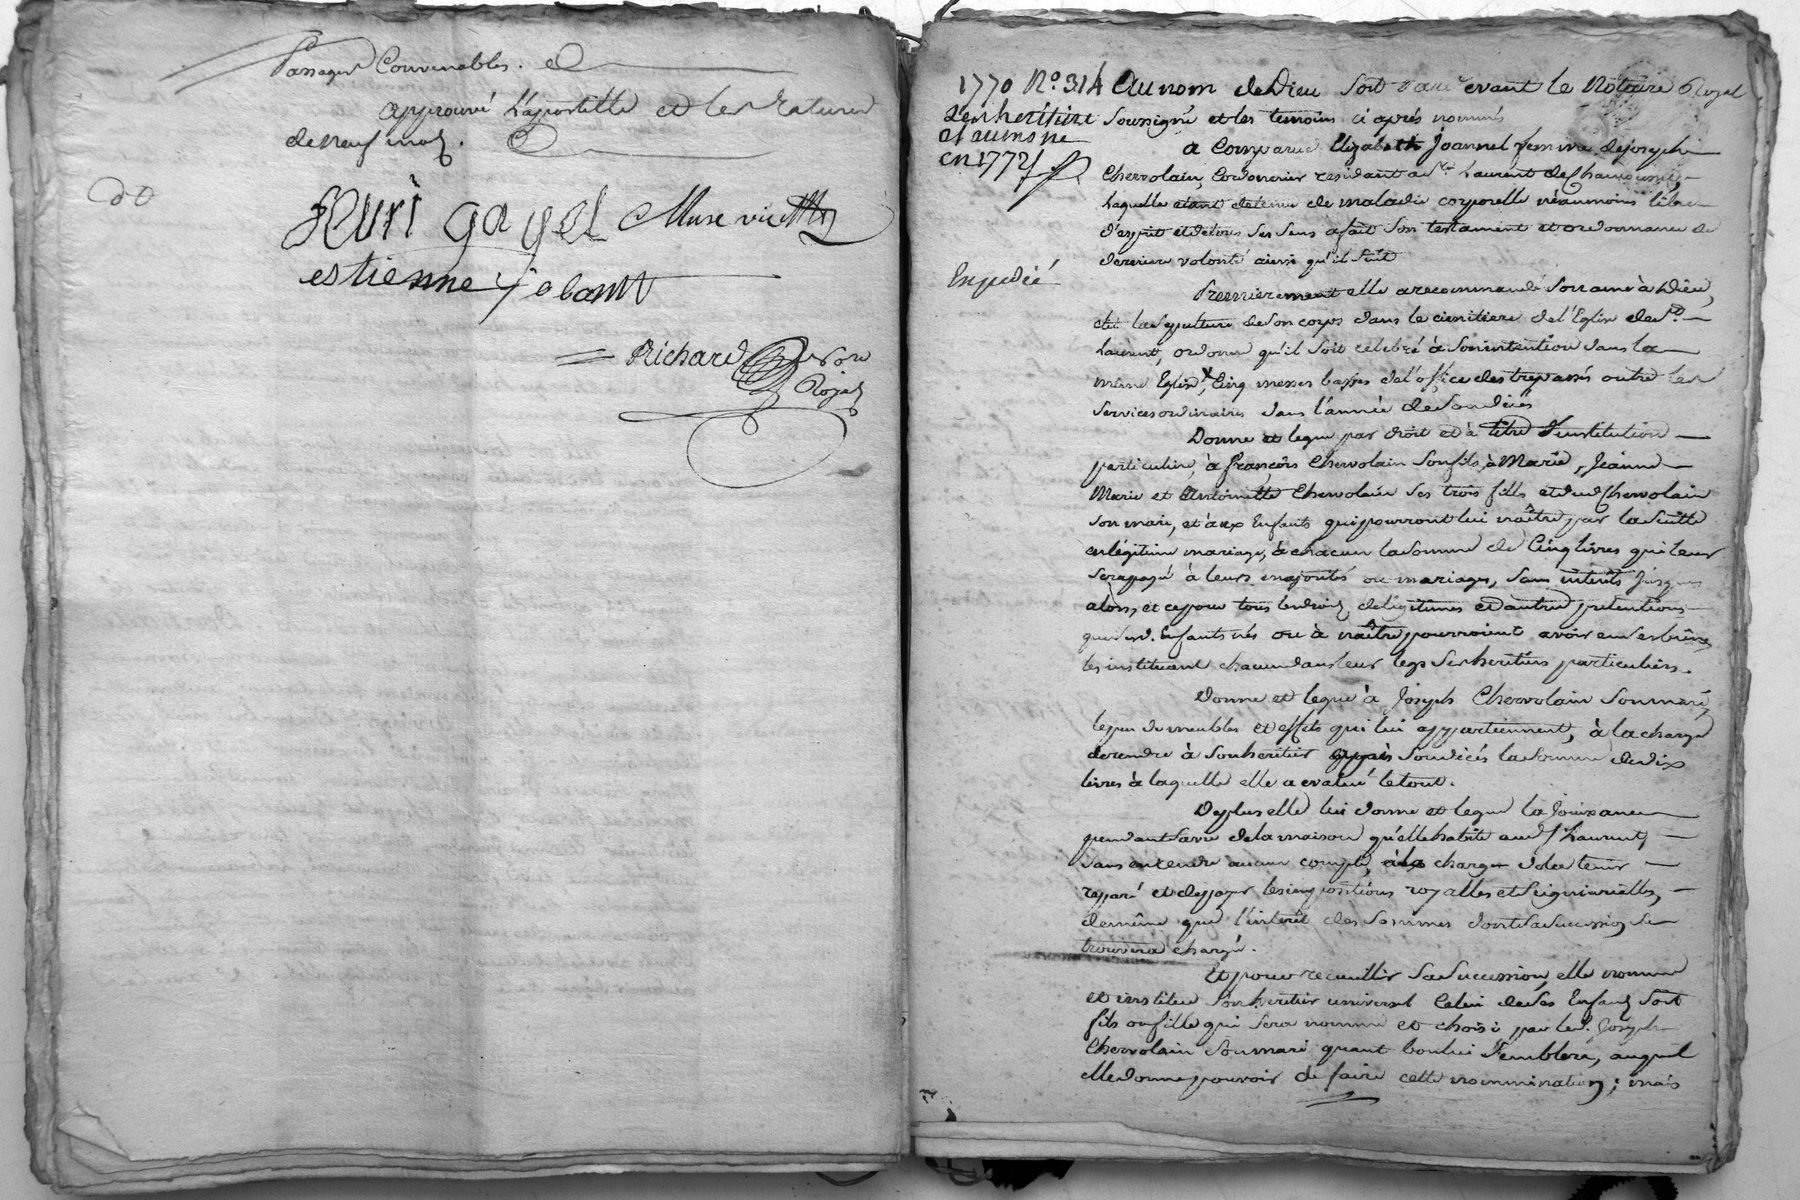 passages Convenables. et
approuvé L'apostille et les ratures
de neuf mots.
henri gayel Muse
estienne jobant
Richard Nore
Royal
1770 N.º 314
d'enheritire
et aumone
en 1772
Expedié
Au nom de Dieu soit par devant le Notaire Royal
Soussigné et les temoins ci après nommés
a Comparue Elizabeth Joannel femme de joseph
Chervolain, Cordonnier residant a St. Laurent de Chamousset,
Laquelle etant detenue de maladie corporelle néanmoins libre
d'esprit et de tous ses sens a fait son testament et ordonnance de
derniere volonté ainsi qu'il suit
Premierement elle a recommandé son ame à Dieu,
élu la sepulture de son corps dans le cimitiere de l'Eglise de St.
Laurent, ordonne qu'il soit celebré à son intention dans la
même Eglise, Cinq messes basses de l'office des trepassés outre les
services ordinaires dans l'année de son decès
Donne et legue par droit et à titre d'institution
particuliere à françois Chervolain son fils, à Marie, Jeanne
Marie et Antoinette Chervolain ses trois filles et dud. Chervolain
son mari, et à ux Enfants qui pourront lui naître par la suitte
en légitime mariage, à chacun la somme de Cinq livres qui leur
sera payé à leurs majorités ou mariages, sans intérêts jusques
alors, et ce pour tous les droits de légitimes et d'autres pretentions
que sesd. Enfants nés ou à naître pourroient avoir en ses biens,
les instituant chacun dans leur legs ses heritiers particuliers.
Donne et legue à Joseph Chervolain son mari,
le peu de meubles et effets qui lui appartiennent, à la charge
de rendre à son heritier après son décés la somme de dix
livres à laquelle elle a evalué le tout.
De plus elle lui donne et legue la Jouissance
pendant sa vie de la maison qu'elle habite aud. St. Laurent
sans en rendre aucun compte, à la charge de la tenir
reparé et de payer les impositions royalles et seigneurialles,
de même que l'intérêt des sommes dont sa succession se
trouvera chargé.
Et pour recueillir sa succession, elle nomme
et institue son heritier universel Celui de ses Enfants soit
fils ou fille qui sera nommé et choisi par led. Joseph
Chervolain son mari quant bon lui semblera, auquel
elle donne pouvoir de faire cette nomination; mais